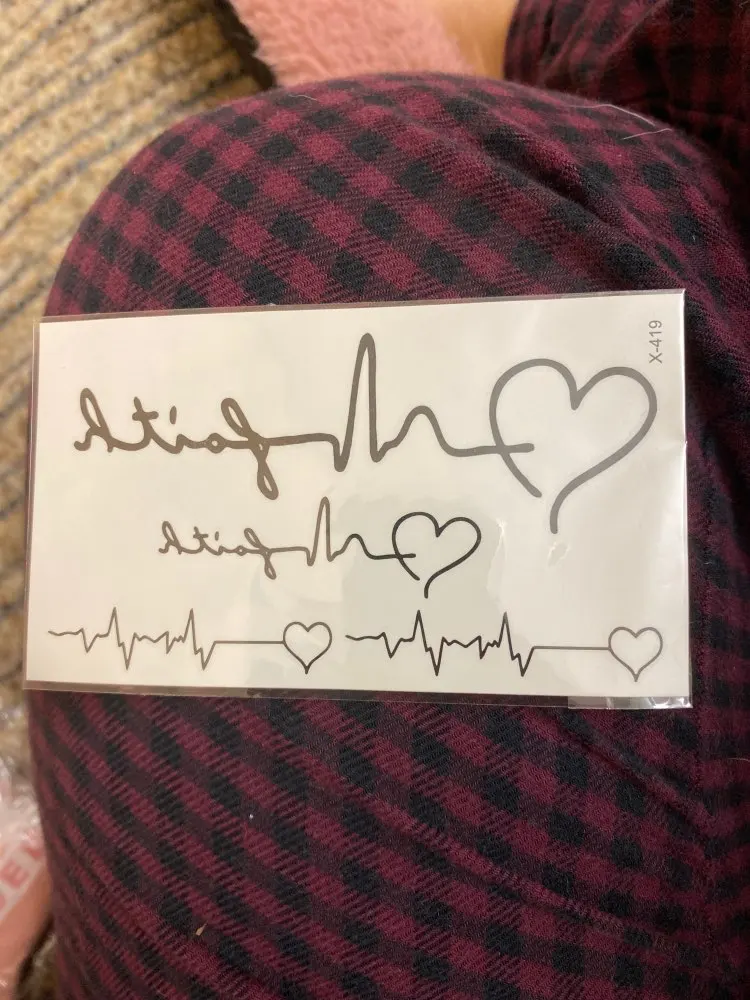 X-419
faith
faith